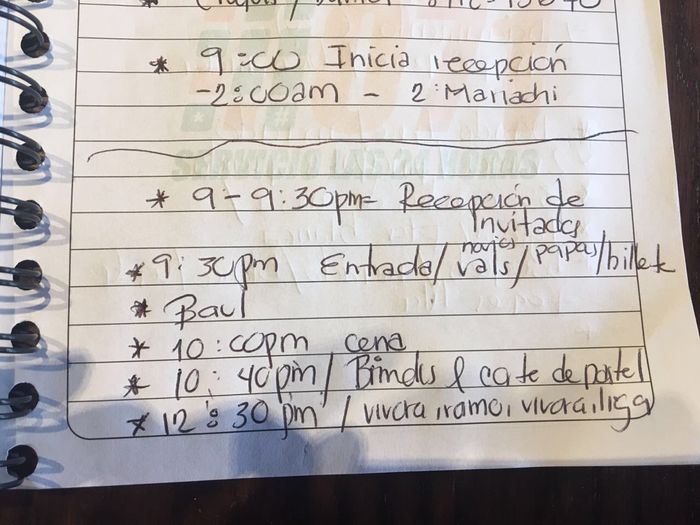 * 9:00 Inicia recepción
-2:00am - 2:Mariachi
* 9-9:30pm= Recepción de
Invitados
* 9:30pm Entrada/ novios vals/ papas/billete
* Baul
* 10:00pm cena
* 10:40pm/ Brindis & cote de pastel
* 12:30 pm / vivora, ramo, vivora, liga